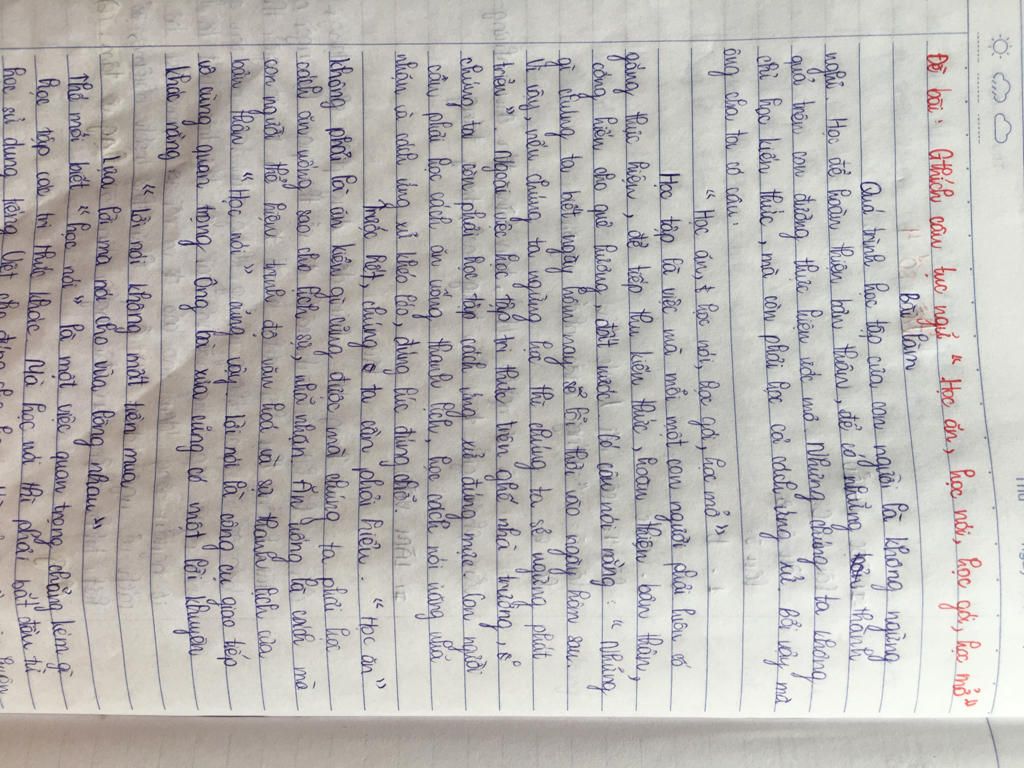 Đề bài: Gthích câu tục ngữ "Học ăn, học nói, học gói, học mở"
Bài làm
Quá trình học tập của con người là không ngừng
nghỉ. Học để hoàn thiện bản thân, để có những thành
quả trên con đường thực hiện ước mơ. Nhưng chúng ta không
chỉ học kiến thức, mà còn phải học cả cách ứng xử. Bởi vậy mà
ông cha ta có câu:
"Học ăn, học nói, học gói, học mở"
Học tập là việc mà mỗi một con người phải luôn cố
gắng thực hiện, để tiếp thu kiến thức, hoàn thiện bản thân,
cống hiến cho quê hương, đất nước. Có câu nói rằng: "Những
gì chúng ta biết ngày hôm nay sẽ lỗi thời vào ngày hôm sau.
Vì vậy, nếu chúng ta ngừng học thì chúng ta sẽ ngừng phát
triển". Ngoài việc học tập tri thức trên ghế nhà trường,
chúng ta còn phải học tập cách ứng xử đúng mực. Con người
cần phải học cách ăn uống thanh lịch, học cách nói năng nhã
nhặn và cách ứng xử khéo léo, đúng lúc đúng chỗ.
Trước hết, chúng ta cần phải hiểu. "Học ăn"
không phải là ăn kiểu gì cũng được mà chúng ta phải học
cách ăn uống sao cho lịch sự, nhã nhặn. Ăn uống là cách mà
con người thể hiện trình độ văn hoá và sự thanh lịch của
bản thân. "Học nói" cũng vậy. Lời nói là công cụ giao tiếp
vô cùng quan trọng. Ông bà xưa cũng có một lời khuyên
khác rằng:
"Lời nói không mất tiền mua
Lựa lời mà nói cho vừa lòng nhau"
Thế mới biết "học nói" là một việc quan trọng chẳng kém gì
học tập các tri thức khác. Mà học nói thì phải bắt đầu từ
học sử dụng tiếng Việt cho đúng